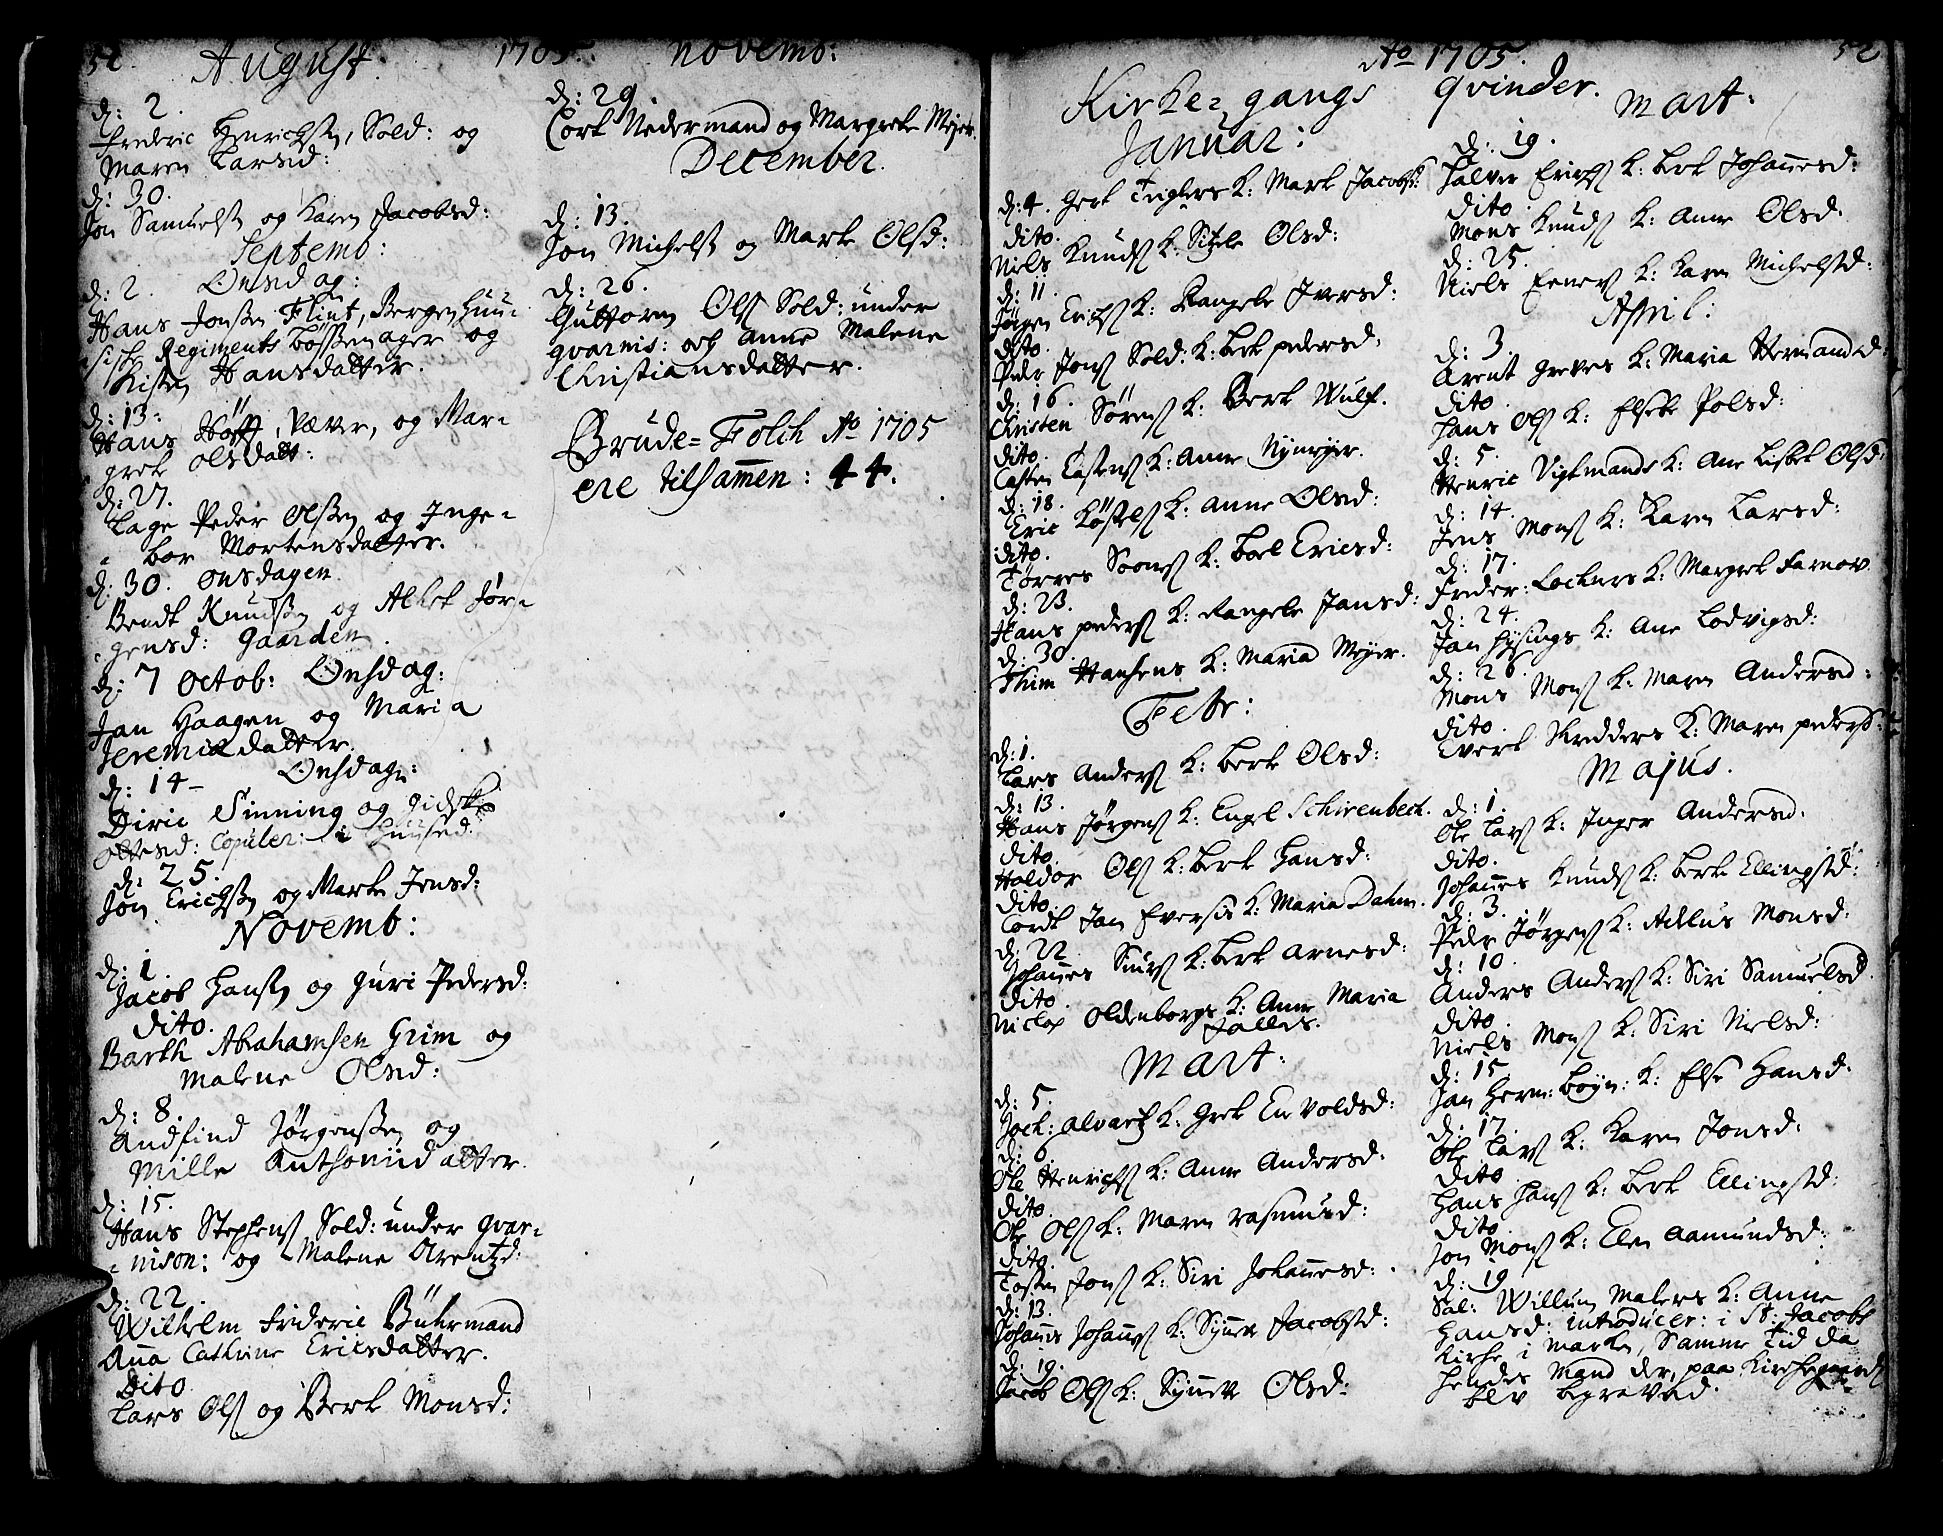 52
1705.
August.
d: 2.
Frederic Henrichsen, Sold: og
Maren Larsd:
d: 30.
Jon Samuels og Karen Jacobsd:
Septemb:
d: 2. Onsdag:
Hans Jonsen Flint, Bergenhuu-
siske Regiments bøssemager og
Kisten Hansdatter.
d: 13.
Hans Höft, Væver, og Mar-
gret olsdatt:
d: 27.
Lage Peder Olssen og Inge-
bor Mortensdatter.
d: 30. onsdagen.
Bendt Knudsen og Albet Jør-
gensd: Gaarden.
d: 7 Octob: Onsdag:
Jan Haagen og Maria
Jeremiædatter.
d: 14 - Onsdag:
Diric Sinning og Gidske
Ottesd: Copuler: i Huused:
d: 25.
Jon Erichsen og Marte Jensd:
Novemb:
d: 1.
Jacob Hansen og Guri Pedersd:
dito.
Barth Abrahamsen Grim og
Malene Olsd:
d: 8.
Andfind Jørgenssen og
Mille Anthoniidatter.
d: 15.
Hans Stephens Sold: under gvar-
nison: og Malene Arentzd:
d: 22.
Wilhelm Frideric Bührmand
Anna Cathrine Ericsdatter.
Dito
Lars Ols og Berte Monsd:
Novemb:
d: 29.
Cort Nedermand og Margrete Meyer.
December.
d: 13.
Jon Michels og Marte Olsd:
d: 26.
Guttorm Ols Sold: under
gvarnis: och Anne Malene
Christiansdatter.
Brude= Folch Ao 1705
ere tilsamen: 44.
Ao 1705.
52
Kirke= gangs qvinder.
Januar:
d: 4. Gert Teglers K: Marte Jacobsd:
dito.
Niels Knuds K: Sitzele Olsd:
d: 11.
Jørgen Erichs K: Rangele Iversd:
dito.
Peder Jons Sold: K: bert pedersd:
d: 16.
Christen Sörens K: Berte Wulf.
dito.
Casten Castens K: Anne Nymeyer.
d: 18.
Eric Kössels K: Anne Olsd:
dito.
Törres Soons K: boel Ericsd:
d: 23.
Hans peders K: Rangele Jansd:
d: 30.
Thim Hansens K: Maria Meyer.
Febr:
d: 1.
Lars Anders K: berte Olsd:
d: 13.
Hans Jørgens K: Engel Schirenbech.
dito.
Haldor Ols K: bert Hansd:
dito.
Cordt Jan Eversis K: Maria Dahm.
d: 22.
Johannes Siurs K: bert Arnesd:
dito.
Niclas Oldenborgs K: Anne Maria
Falles.
Mart:
d: 5.
Joch: alvartz K: Gret Envoldsd:
d: 6.
Ole Henrichs K: Anne Andersd:
dito.
Ole Ols K: Maren rasmusd:
dito.
Tosten Jons K: Siri Johannesd:
d: 13.
Johannes Johans K: Synneve Jacobsd:
d: 19.
Jacob Ols K: Synneve Olsd:
Mart:
d: 19.
Halvor Erichs K: bert Johannesd:
dito.
Mons Knuds K: Anne Olsd:
d: 25.
Niels Eeners K: Karen Michelsd:
April:
d: 3.
Arent Greves K: Maria Hermandsd:
dito.
Hans Ols K: Elsebe Polsd:
d: 5.
Henric Vigtmands K: Ane Lisbet Olsd:
d: 14.
Jens Mons K: Karen Larsd:
d: 17.
Freder: Lochners K: Margret Farnov.
d: 24.
Jan Hysings K: Ane Lodvigsd:
d: 26.
Mons Mons K: Maren Andersd:
dito.
Evert Skredders K: Maren pedersd:
Majus.
d: 1.
Ole Lars K: Inger Andersd.
dito.
Johannes Knuds K: berte Ellingsd:
d: 3.
Peder Jørgens K: Adlus Monsd:
d: 10.
Anders Anders K: Siri Samuelsd.
dito.
Niels Mons K: Siri Nielsd:
d: 15.
Jan Herm: boyn: K: Else Hansd:
d: 17.
Ole Lars K: Karen Jonsd:
dito
Hans Hans K: bert Ellingsd:
dito.
Jon Mons K: Elen Aamundsd:
d: 19
Sal: Willum Malers K: Anne
Hansd: introducer: i St: Jacobs
Kirche i marken, Samme Tid da
hendes Mand der, paa Kirchegaard
blev begraved.